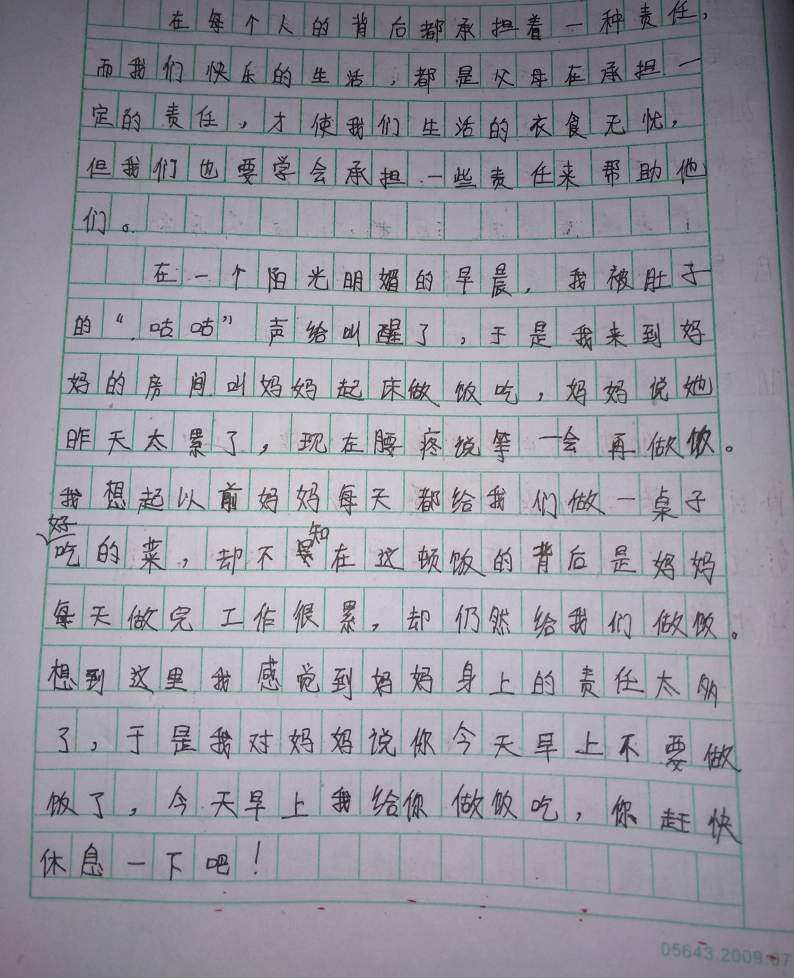 在每个人的背后都承担着一种责任，
而我们快乐的生活，都是父母在承担一
定的责任，才使我们生活的衣食无忧，
但我们也要学会承担一些责任来帮助他
们。
在一个阳光明媚的早晨，我被肚子
的“咕咕”声给叫醒了，于是我来到妈
妈的房间叫妈妈起床做饭吃，妈妈说她
昨天太累了，现在腰疼说等一会再做饭。
我想起以前妈妈每天都给我们做一桌子
好
吃的菜，却不知在这顿饭的背后是妈妈
每天做完工作很累，却仍然给我们做饭。
想到这里我感觉到妈妈身上的责任太多
了，于是我对妈妈说你今天早上不要做
饭了，今天早上我给你做饭吃，你赶快
休息一下吧！
05643.2009.07